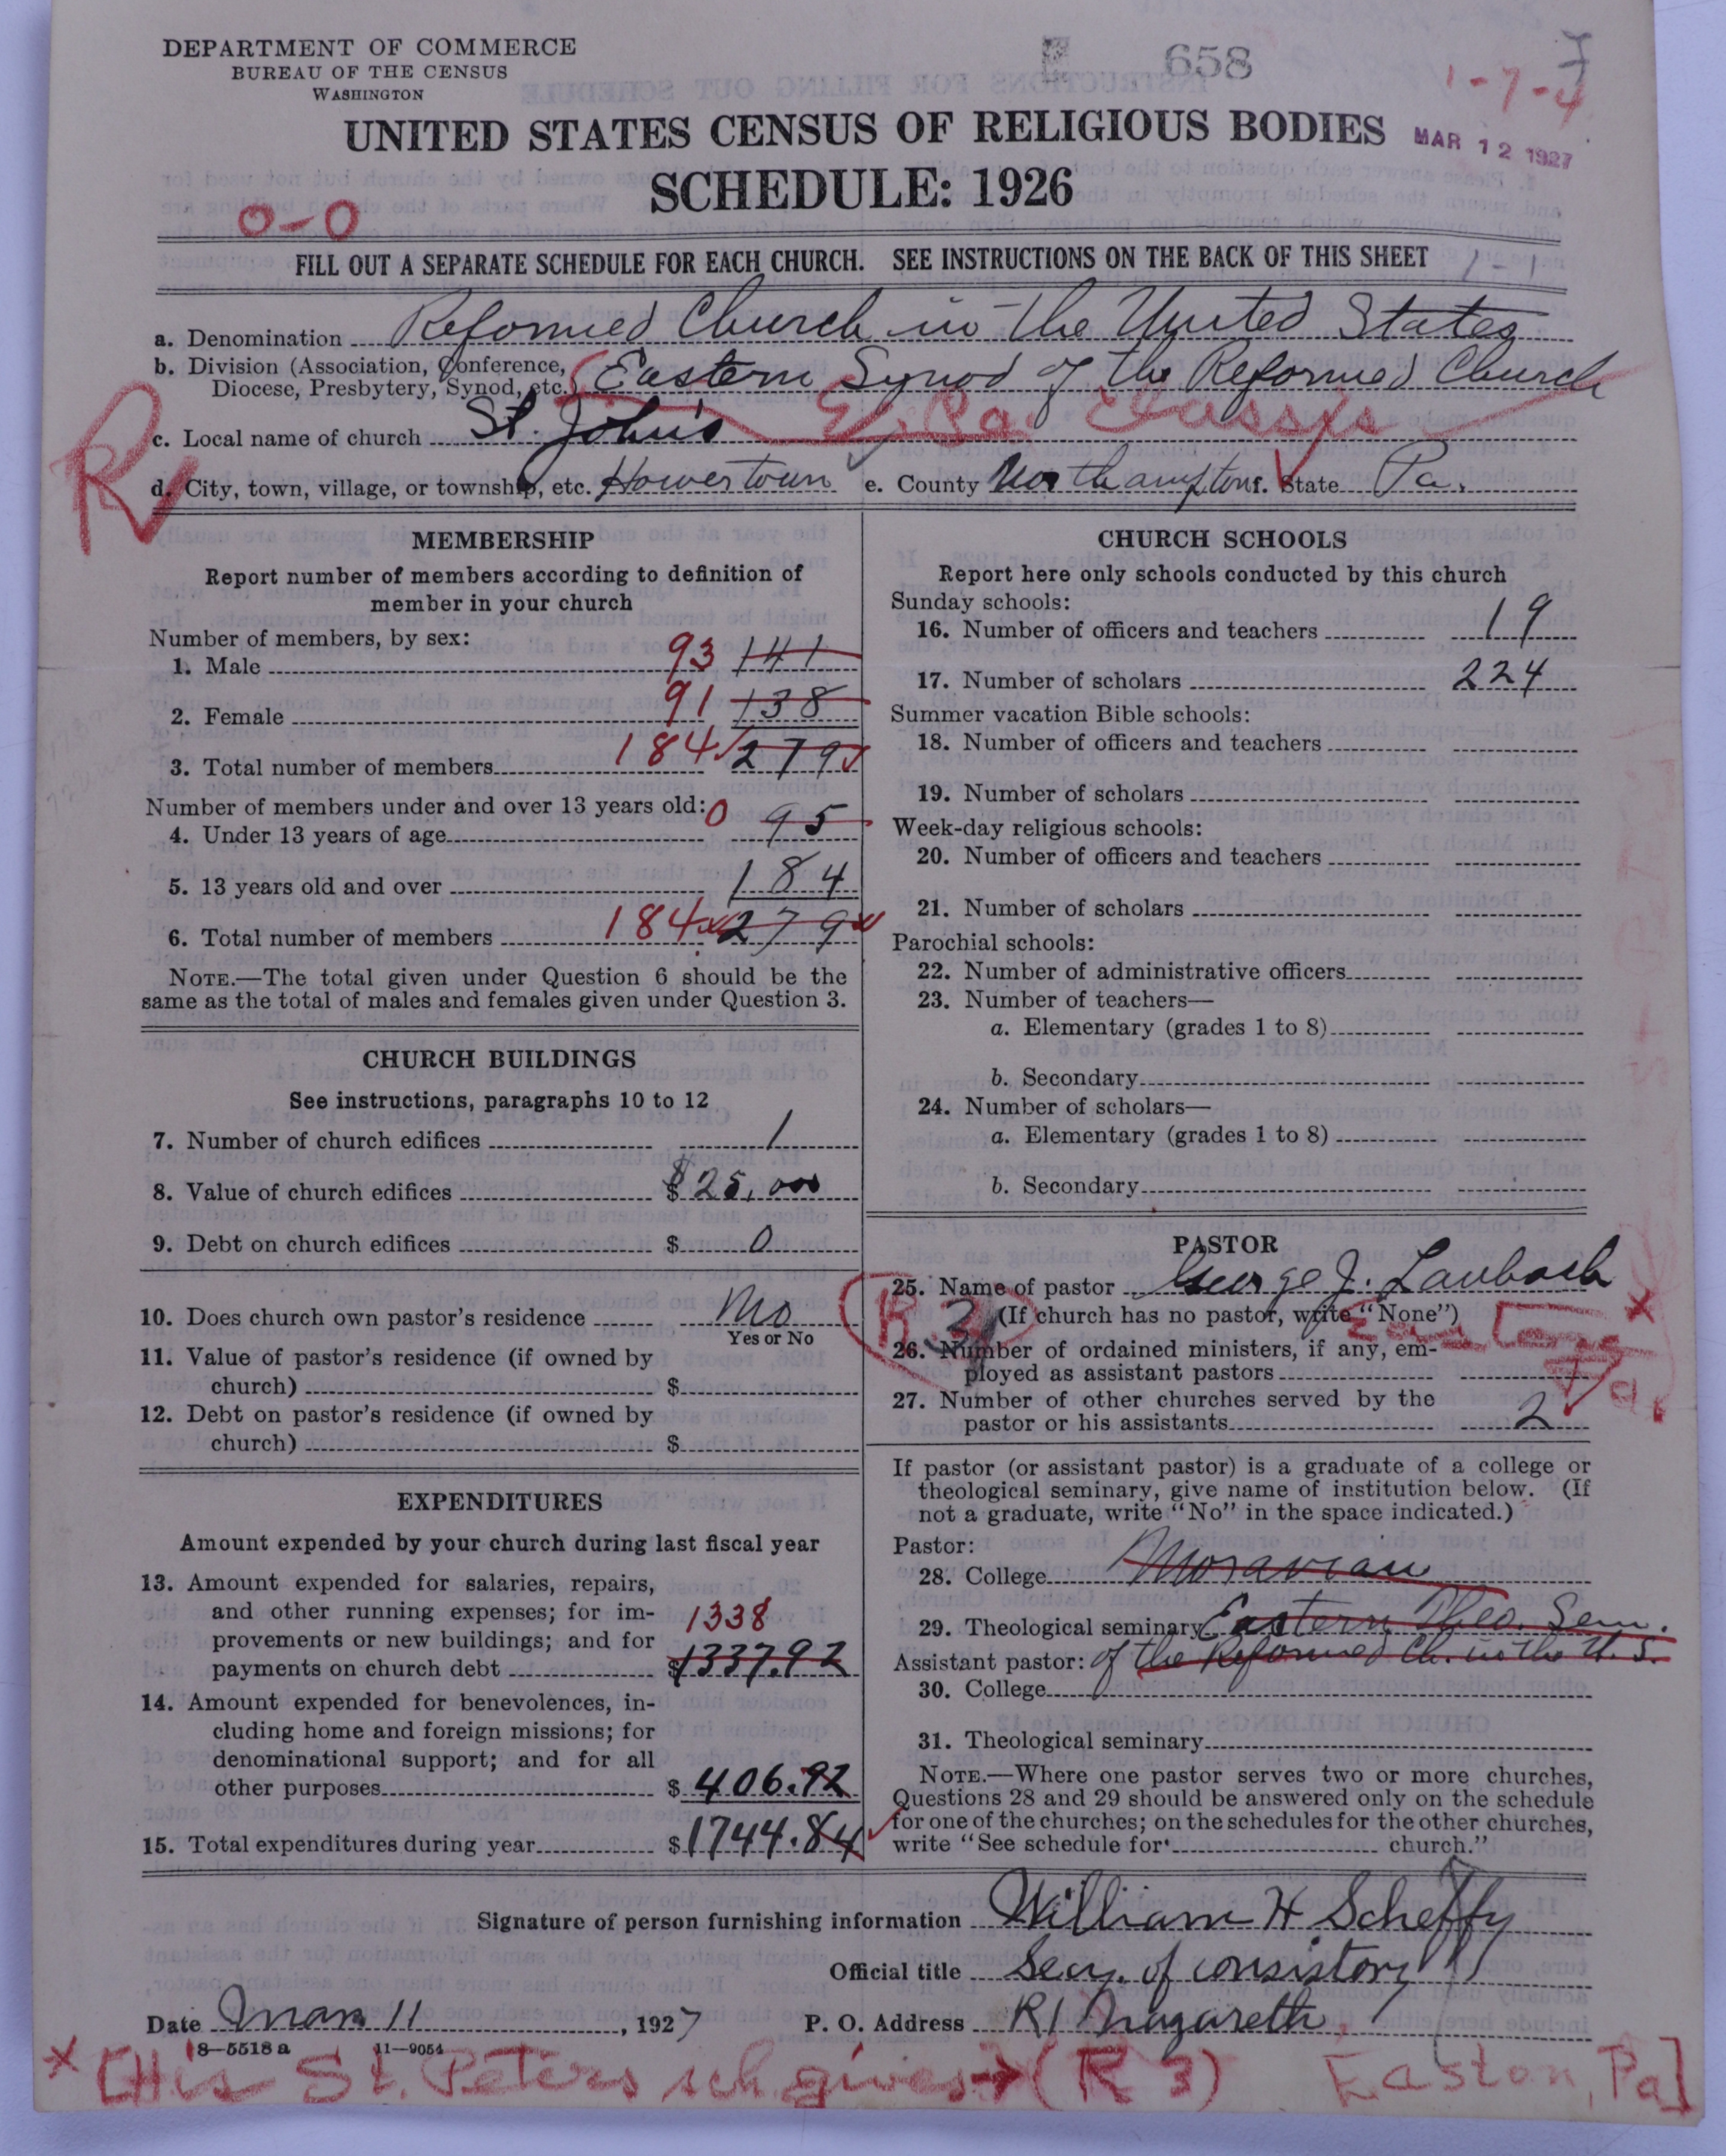 DEPARTMENT OF COMMERCE
BUREAU OF THE CENSUS
WASHINGTON
658
1-7-4
UNITED STATES CENSUS OF RELIGIOUS BODIES
MAR 12 1927
SCHEDULE: 1926
0-0
FILL OUT A SEPARATE SCHEDULE FOR EACH CHURCH. SEE INSTRUCTIONS ON THE BACK OF THIS SHEET
1-1
a. Denomination Reformed Church in the United States
b. Division (Association, Conference, Diocese, Presbytery, Synod, etc.) Eastern Synod of the Reformed Church
E. Pa. Classis
c. Local name of church St. John's
R
d. City, town, village, or township, etc. Howertown e. County Northampton f. State Pa.
MEMBERSHIP
Report number of members according to definition of
member in your church
Number of members, by sex:
1. Male 93 141
2. Female 91 138
3. Total number of members 184 279
Number of members under and over 13 years old:
4. Under 13 years of age 0 95
5. 13 years old and over 184
6. Total number of members 184 279
NOTE.—The total given under Question 6 should be the
same as the total of males and females given under Question 3.
CHURCH BUILDINGS
See instructions, paragraphs 10 to 12
7. Number of church edifices 1
8. Value of church edifices $ 25,000
9. Debt on church edifices $ 0
10. Does church own pastor's residence No
Yes or No
11. Value of pastor's residence (if owned by
church) $
12. Debt on pastor's residence (if owned by
church) $
EXPENDITURES
Amount expended by your church during last fiscal year
13. Amount expended for salaries, repairs,
and other running expenses; for im-
provements or new buildings; and for
1338
payments on church debt $1337.92
14. Amount expended for benevolences, in-
cluding home and foreign missions; for
denominational support; and for all
other purposes $ 406.92
15. Total expenditures during year $1744.84
CHURCH SCHOOLS
Report here only schools conducted by this church
Sunday schools:
16. Number of officers and teachers 19
17. Number of scholars 224
Summer vacation Bible schools:
18. Number of officers and teachers
19. Number of scholars
Week-day religious schools:
20. Number of officers and teachers
21. Number of scholars
Parochial schools:
22. Number of administrative officers
23. Number of teachers—
a. Elementary (grades 1 to 8)
b. Secondary
24. Number of scholars—
a. Elementary (grades 1 to 8)
b. Secondary
PASTOR
25. Name of pastor George J. Laubach
(If church has no pastor, write "None")
R. 3
26. Number of ordained ministers, if any, em-
ployed as assistant pastors
Pa.
27. Number of other churches served by the
pastor or his assistants 2
If pastor (or assistant pastor) is a graduate of a college or
theological seminary, give name of institution below. (If
not a graduate, write "No" in the space indicated.)
Pastor:
28. College Moravian
29. Theological seminary Eastern Theo. Sem.
Assistant pastor: of the Reformed Ch. in the U. S.
30. College
31. Theological seminary
NOTE.—Where one pastor serves two or more churches,
Questions 28 and 29 should be answered only on the schedule
for one of the churches; on the schedules for the other churches,
write "See schedule for church."
Signature of person furnishing information William H Scheffy
Official title Secy. of consistory
Date Mar. 11, 1927 P. O. Address R1 Nazareth
8—5518a 11—9054
* [His St. Peters sch gives → (R 3) Easton, Pa]